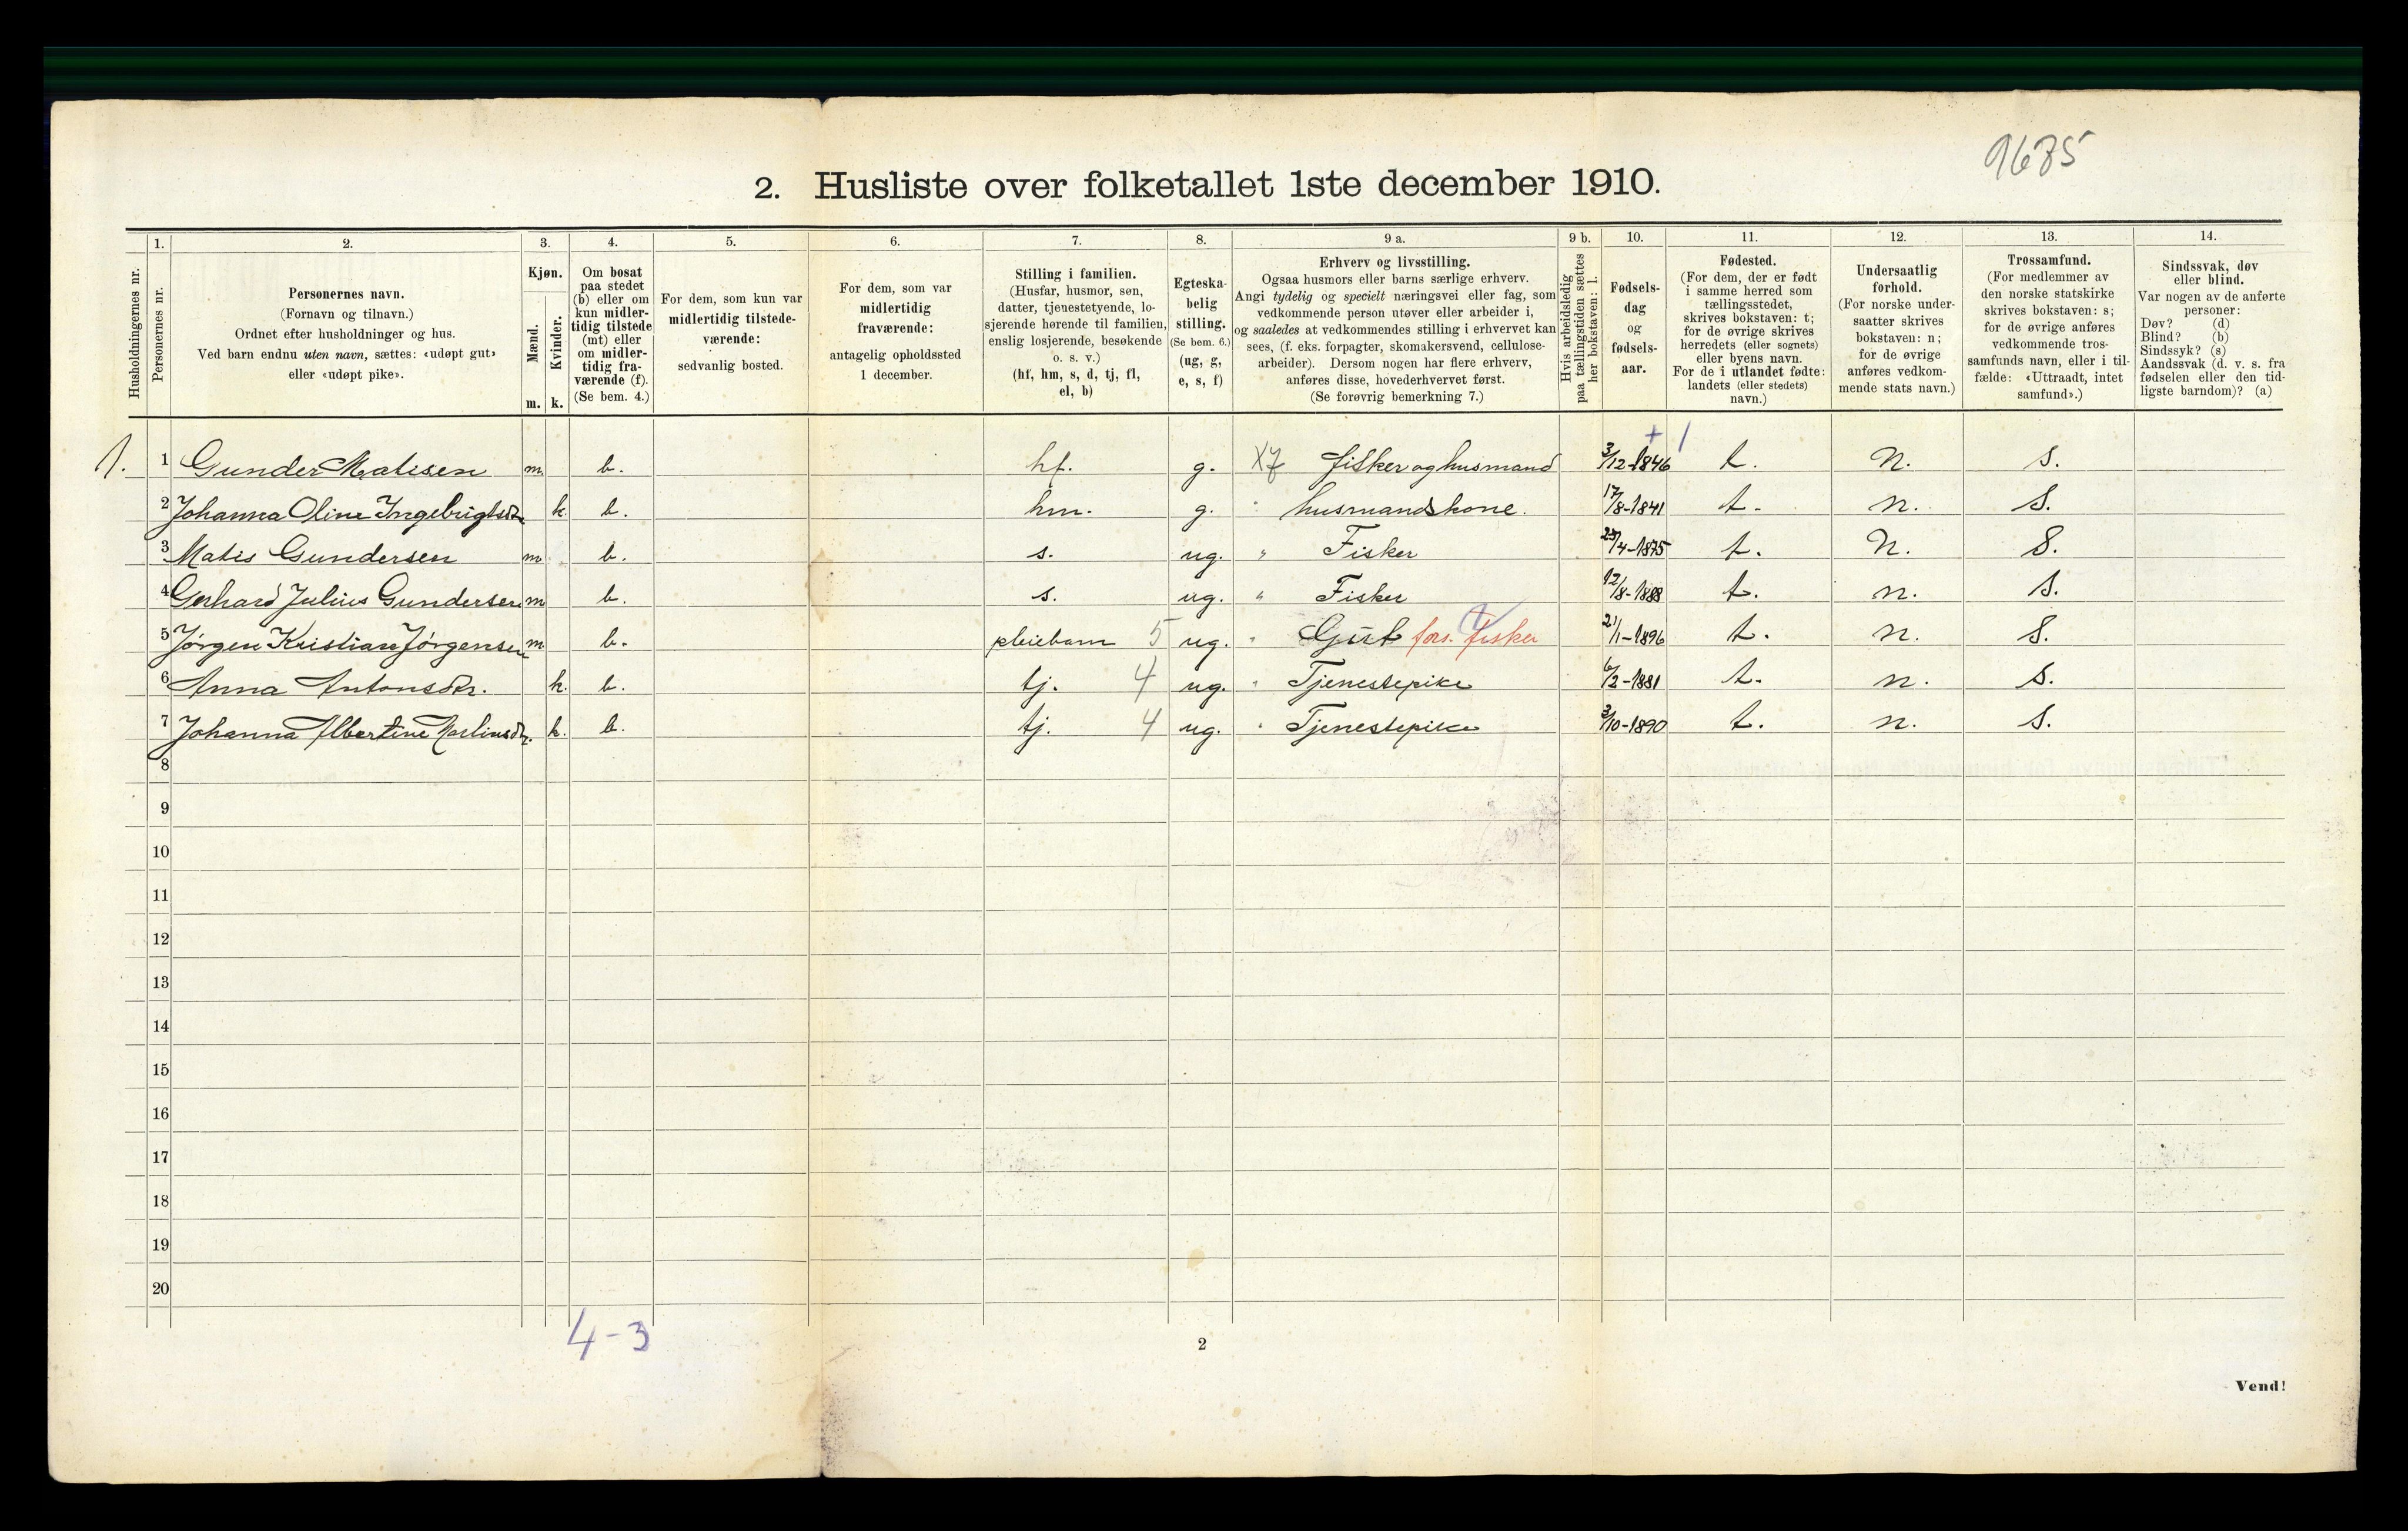 9675
2. Husliste over folketallet 1ste december 1910.
Husholdningernes nr.
1.
Personernes nr.
2.
Personernes navn.
(Fornavn og tilnavn.)
Ordnet efter husholdninger og hus.
Ved barn endnu uten navn, sættes: «udøpt gut»
eller «udøpt pike».
3.
Kjøn.
Mænd.
Kvinder.
m. k.
4.
Om bosat
paa stedet
(b) eller om
kun midler-
tidig tilstede
(mt) eller
om midler-
tidig fra-
værende (f).
(Se bem. 4.)
5.
For dem, som kun var
midlertidig tilstede-
værende:
sedvanlig bosted.
6.
For dem, som var
midlertidig
fraværende:
antagelig opholdssted
1 december.
7.
Stilling i familien.
(Husfar, husmor, søn,
datter, tjenestetyende, lo-
sjerende hørende til familien,
enslig losjerende, besøkende
o. s. v.)
(hf, hm, s, d, tj, fl,
el, b)
8.
Egteska-
belig
stilling.
(Se bem. 6.)
(ug, g,
e, s, f)
9 a.
Erhverv og livsstilling.
Ogsaa husmors eller barns særlige erhverv.
Angi tydelig og specielt næringsvei eller fag, som
vedkommende person utøver eller arbeider i,
og saaledes at vedkommendes stilling i erhvervet kan
sees, (f. eks. forpagter, skomakersvend, cellulose-
arbeider). Dersom nogen har flere erhverv,
anføres disse, hovederhvervet først.
(Se forøvrig bemerkning 7.)
9 b.
Hvis arbeidsledig
paa tællingstiden sættes
her bokstaven: l.
10.
Fødsels-
dag
og
fødsels-
aar.
11.
Fødested.
(For dem, der er født
i samme herred som
tællingsstedet,
skrives bokstaven: t;
for de øvrige skrives
herredets (eller sognets)
eller byens navn.
For de i utlandet fødte:
landets (eller stedets)
navn.)
12.
Undersaatlig
forhold.
(For norske under-
saatter skrives
bokstaven: n;
for de øvrige
anføres vedkom-
mende stats navn.)
13.
Trossamfund.
(For medlemmer av
den norske statskirke
skrives bokstaven: s;
for de øvrige anføres
vedkommende tros-
samfunds navn, eller i til-
fælde: «Uttraadt, intet
samfund».)
14.
Sindssvak, døv
eller blind.
Var nogen av de anførte
personer:
Døv? (d)
Blind? (b)
Sindssyk? (s)
Aandssvak (d. v. s. fra
fødselen eller den tid-
ligste barndom)? (a)
1. 1 Gunder Matisen m b. hf. g. X7 fisker og husmand 3/12-1846 t. n. s.
2 Johanna Oline Ingebrigtsdr. k. b. hm. g. " husmandskone. 17/8-1841 t. n. s.
3 Matis Gundersen m b. s. ug. " Fisker 25/4-1875 t. n. s.
4 Gerhard Julius Gundersen m b. s. ug. " Fisker 12/8-1888 t. n. s.
5 Jørgen Kristian Jørgensen m b. pleiebarn 5 ug. " Gjut fors. fisker 21/1-1896 t. n. s.
6 Anna Antonsdr. k. b. tj. 4 ug. " Tjenestepike 6/2-1881 t. n. s.
7 Johanna Albertine k. b. tj. 4 ug. " Tjenestepike 3/10-1890 t. n. s.
8
9
10
11
12
13
14
15
16
17
18
19
20
4-3
2
Vend!